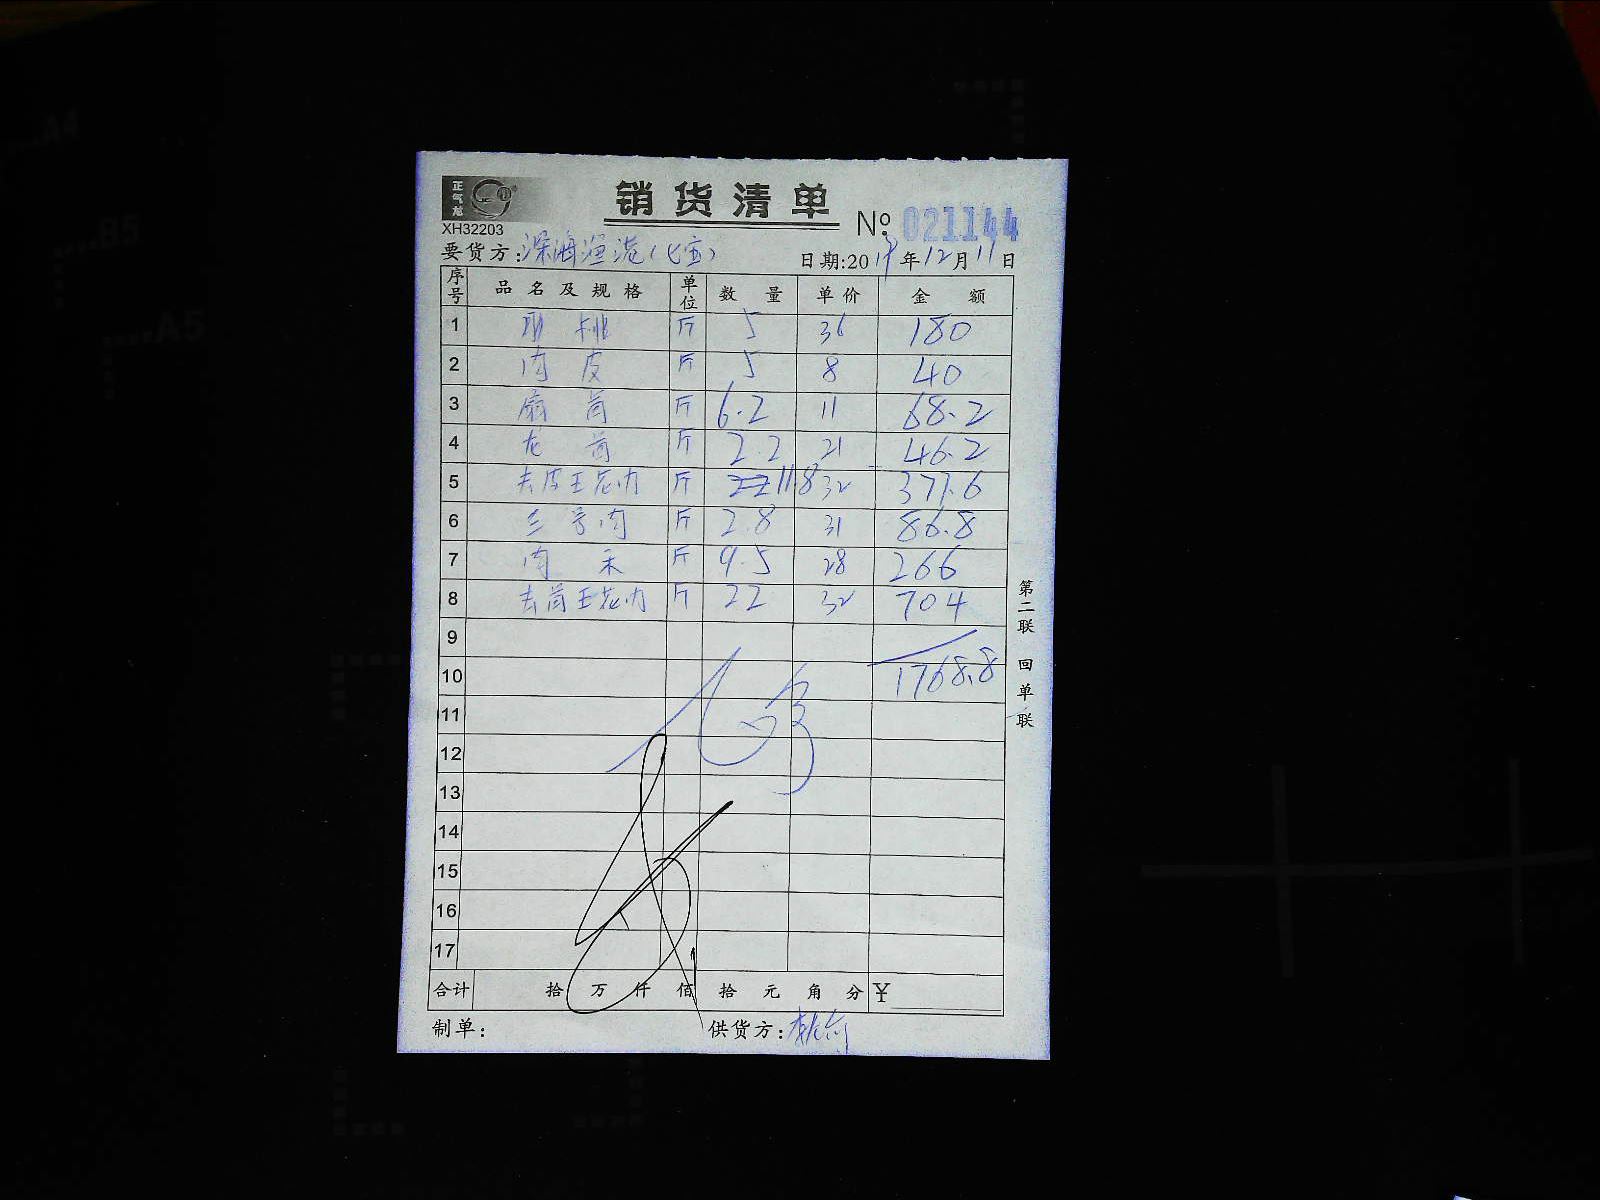 正气龙
销货清单
XH32203
№ 021144
要货方:深海渔港(七宝) 日期:2019年12月11日
序号 品名及规格 单位 数量 单价 金额
1 斤 5 36 180
2 肉皮 斤 5 8 40
3 扇骨 斤 6.2 11 68.2
4 龙骨 斤 2.2 21 46.2
5 去皮王花肉 斤 22 11.8 32 377.6
6 三号肉 斤 2.8 31 86.8
7 肉末 斤 9.5 28 266
8 去骨王花肉 斤 22 32 704
9
10 1768.8
11
12
13
14
15
16
17
合计 拾 万 仟 佰 拾 元 角 分 ¥
制单: 供货方:
第二联 回单联
A4
B5
A5